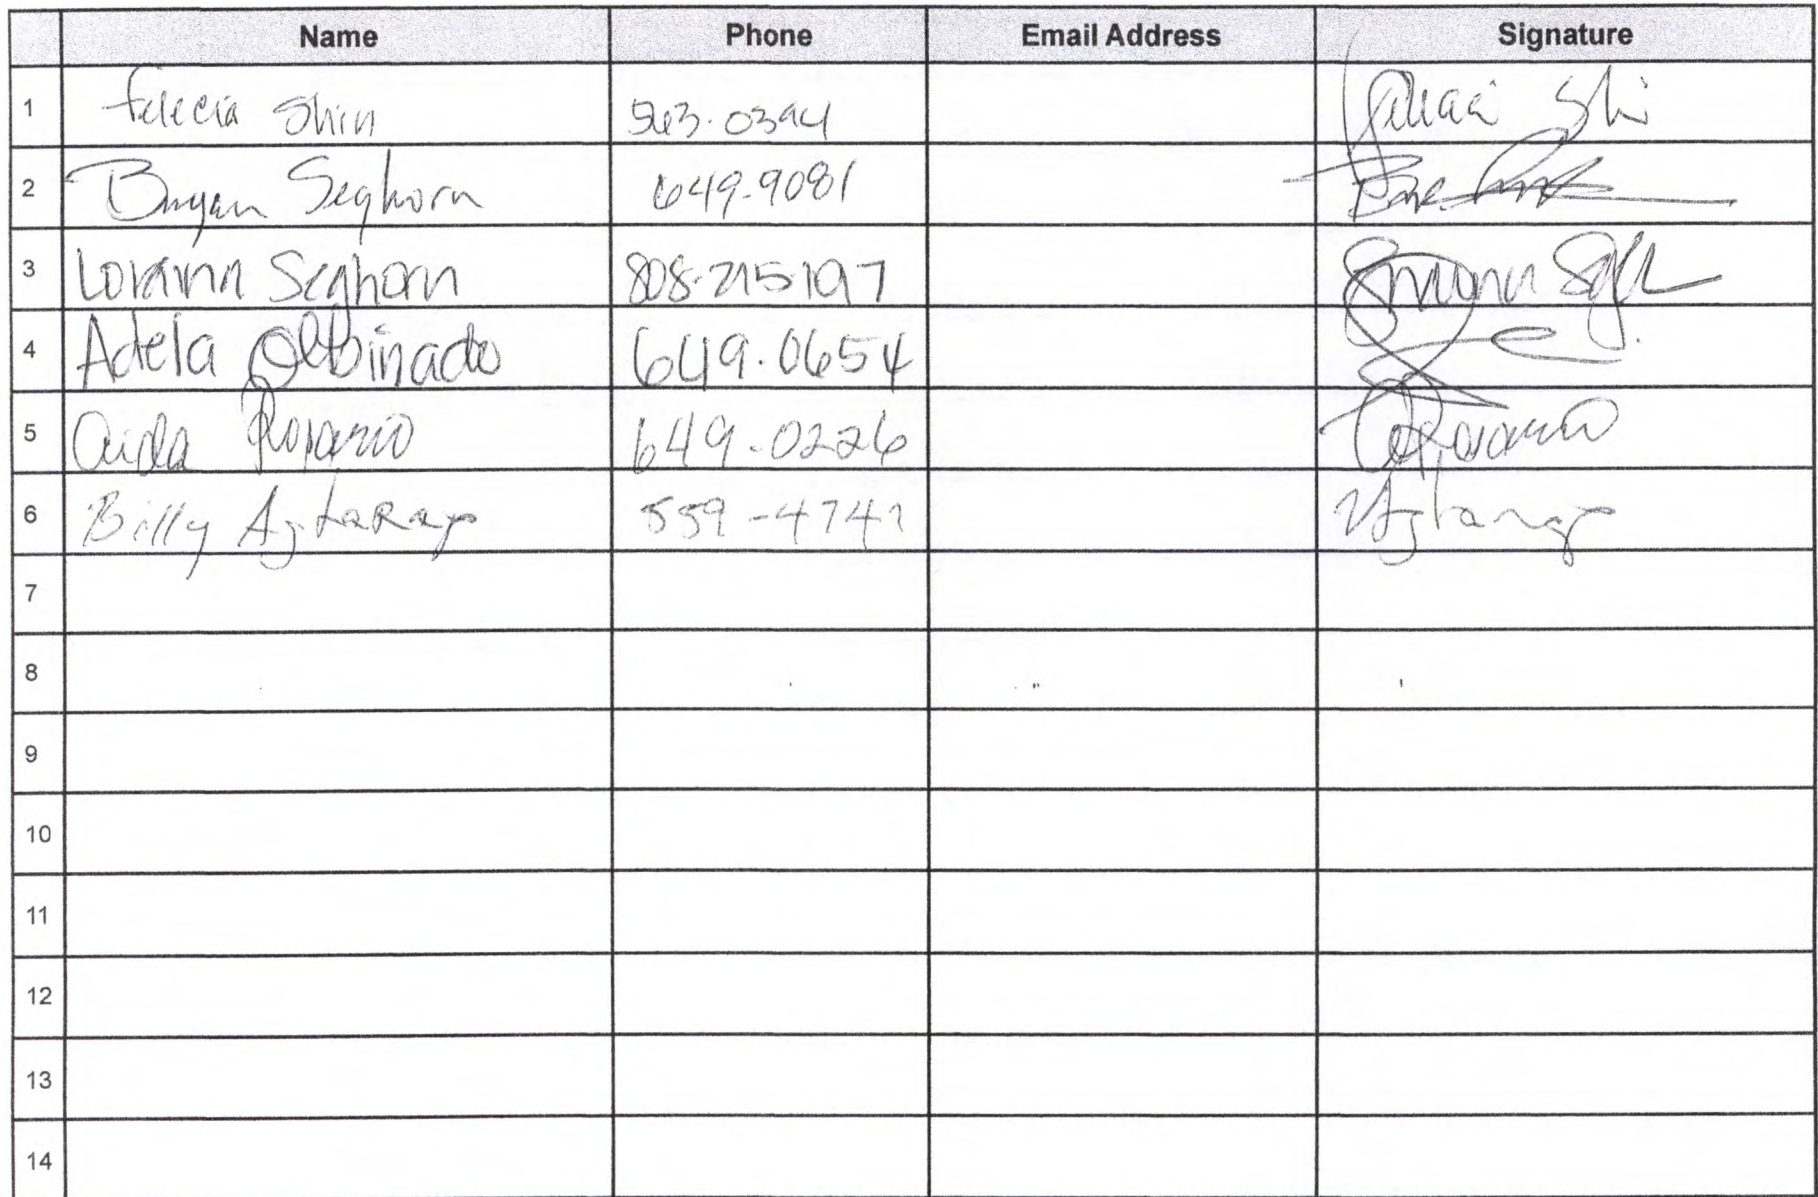 Name Phone Email Address Signature
1 Felecia Shin 563-0394
2 Bryan Seghorn 649-9081
3 Lorann Seghorn 808-215-197
4 Adela Albinado 649.0654
5 Aida Rosario 649-0226 Rosario
6 Billy Agtarap 559-4747 Agtarap
7
8
9
10
11
12
13
14